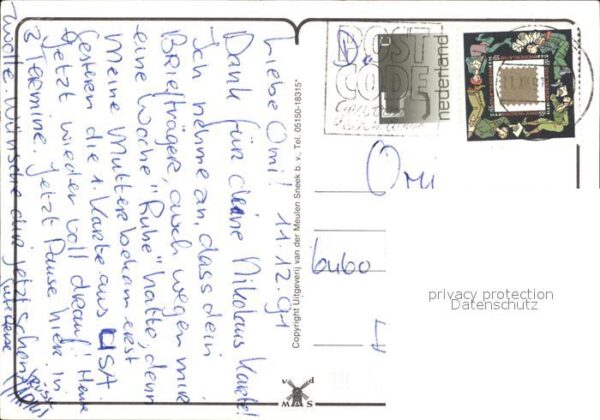 Liebe Omi! 11.12.91
Dank für deine Nikolaus Karte!
Ich nehme an, dass dein
Briefträger, auch wegen mir
eine Woche "Ruhe" hatte, denn
Meine Mutter bekam erst
Gestern die 1. Karte aus USA.
Jetzt wieder voll drauf! Heute
2 Termine. Jetzt Pause hier in
Wünsche dir jetzt schon
Gute Reise
Copyright Uitgeverij van der Meulen Sneek b.v., Tel. 05150-18315*
v d
MAS
POST
CODE
nederland
55
55
NEDERLAND
Omi
6460
privacy protection
Datenschutz